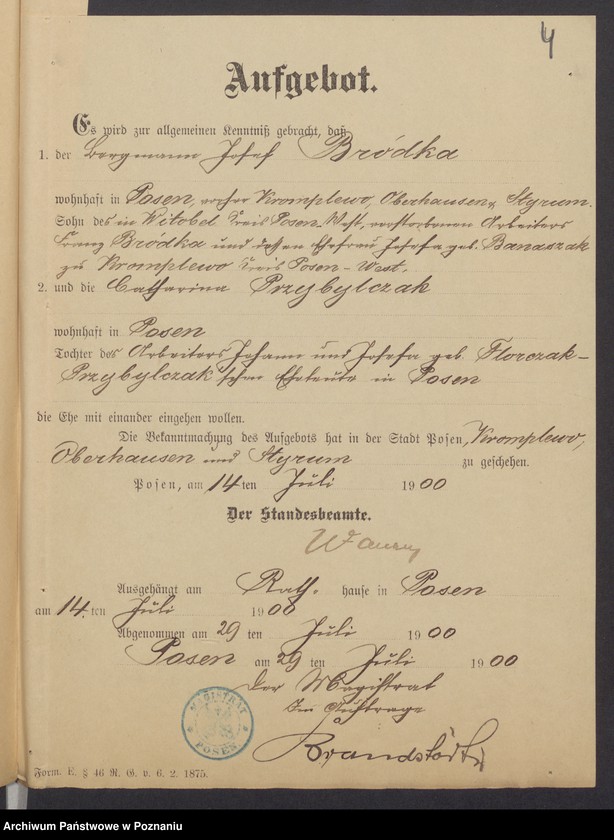 4
Aufgebot.
Es wird zur allgemeinen Kenntniß gebracht, daß
1. der Bergmann Josef Bródka
wohnhaft in Posen, vorher Kromplewo, Oberhausen, Styrum.
Sohn des in Witobel Kreis Posen-West, verstorbenen Arbeiters
Franz Bródka und dessen Ehefrau Josefa geb. Banaszak
zu Kromplewo Kreis Posen-West.
2. und die Catharina Przybylczak
wohnhaft in Posen
Tochter des Arbeiters Johann und Josefa geb. Florczak-
Przybylczak'schen Eheleute in Posen
die Ehe mit einander eingehen wollen.
Die Bekanntmachung des Aufgebots hat in der Stadt Posen, Kromplewo,
Oberhausen und Styrum zu geschehen.
Posen, am 14ten Juli 1900
Der Standesbeamte.
Ausgehängt am Rath-hause in Posen
am 14.ten Juli 1900
Abgenommen am 29 ten Juli 1900
Posen am 29 ten Juli 1900
Der Magistrat
Im Auftrage
MAGISTRAT
POSEN
Form. E. § 46 R. G. v. 6. 2. 1875.
Archiwum Państwowe w Poznaniu
szukajwarchiwach.gov.pl